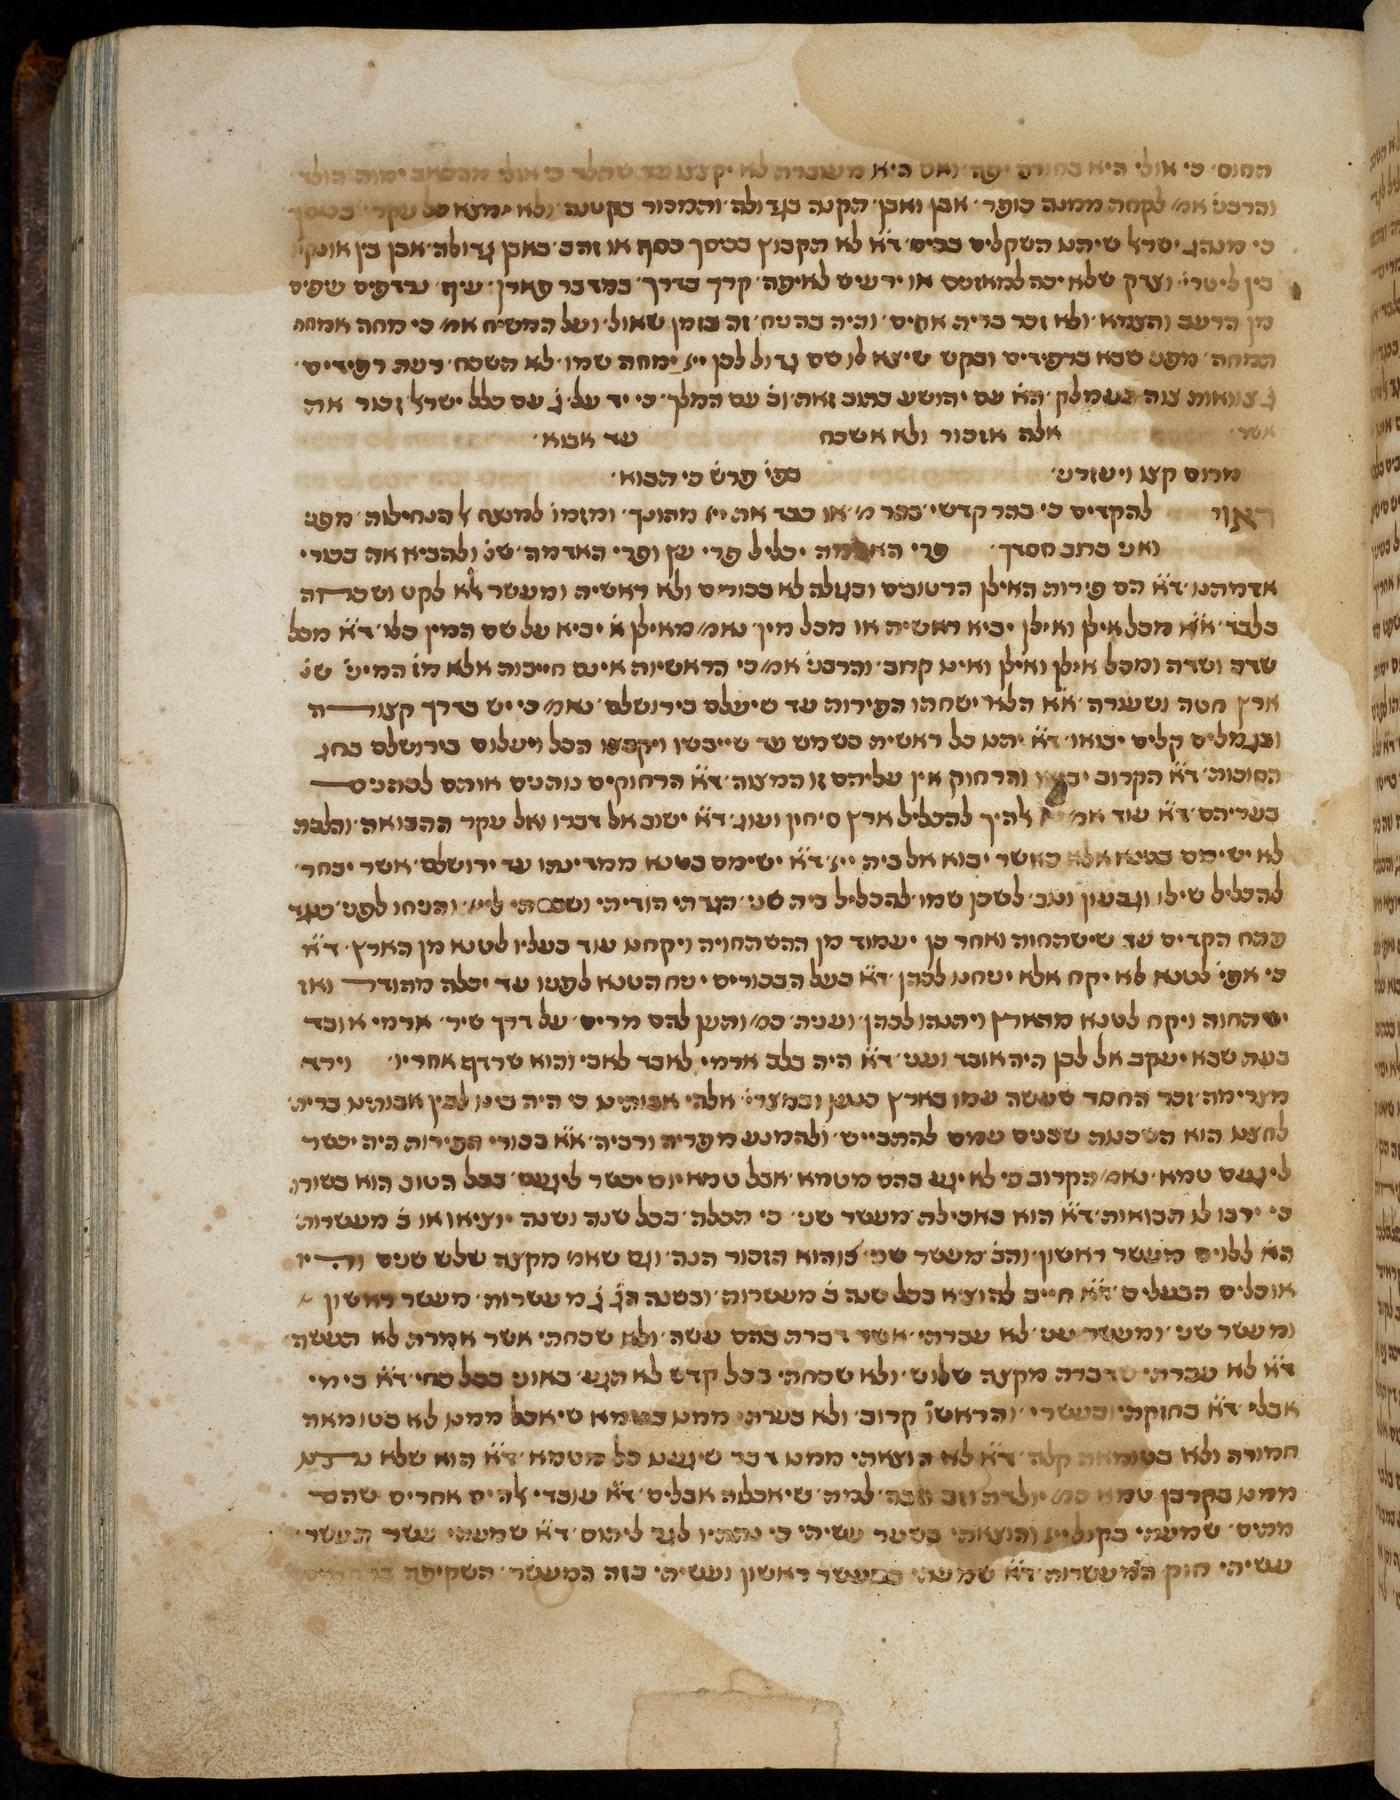 החוס׳ כי אולי היא בחורה יפה׳ ואם היא מעוברת לא יקצצו עד שתלד כי אולי ימות הולד׳
והרבני אמ׳ לקחה ממנה כופר׳ אבן ואבן׳ הקנה בגדולה׳ והמכור בקטנה׳ ולא ימצא כל עקר׳
כי מנהג ישרל שיהיו השקלים בכיס׳ ד״א לא הקבוץ בכיסך כסף או זהב׳ באבן גדולה׳ אבן בין אונקי׳
בין ליטרי׳ וצדק שלא יכה למאזנים או ירשים לאיפה׳ קרך בדרך׳ במדבר פארן׳ עיף׳
מן הרעב והצמא׳ ולא זכר ברית אחים׳ והיה בהניח׳ זה בזמן שאול׳ ועל המשיח אמ׳ כי מחה אמחה
תמחה׳ מפני שבא ברפידים ובקש שיצא לו שם גדול לכן ייי ימחה שמו׳ לא תשכח׳ רעת רפידים׳
ג׳ צוואות צוה בעמלק׳ הא׳ עם יהושע כתוב זאת׳ וב׳ עם המלך׳ כי יד על׳ ג׳ עם כלל ישרל זכור את
אשר׳ אלה אזכור ולא אשכח עד אבוא׳
מרום קצו ויעזרני׳ בפי׳ פרש׳ כי תבוא׳
ראוי להקדים כי בהר קדשי׳ כפר מ׳ או כבד את ייי מהונך׳ ומזמו׳ למנצח אל הנחילות׳ מפני
ואני ברוב חסדך׳ פרי האדמה יכליל פרי עץ ופרי האדמה׳ שנ׳ ולהביא את בכורי
אדמתנו׳ ד״א הם פירות האילן הרטובים ובעגלה לא בכורים ולא ראשית ומעשר לא לקט ושכחה
בלבד׳ א״א מכל אילן ואילן יביא ראשית או מכל מין׳ נאמ׳ מאילן א׳ יביא על שם המין כלו׳ ד״א מכל
שדה ושדה ומכל אילן ואילן ואינו קרוב׳ והרבני אמ׳ כי הראשיות אינם חייבות אלא מז׳ המיני׳ שנ׳
ארץ חטה ושעורה׳ א״א הלא ישחתו הפירות עד שיעלם בירושלם׳ נאמ׳ כי יש בדרך קצרה
ובגמלים קלים יבואו׳ ד״א יהיו כל ראשית בשמש עד שייבשו ויקבצו הכל ויעלום בירושלם בחג
הסוכות׳ ד״א הקרוב יביאו והרחוק אין עליהם זו המצוה׳ ד״א הרחוקים נותנים אותם לכהנים
בעריהם׳ ד״א עוד אמ׳ אלהיך להכליל ארץ סיחון ועוג׳ ד״א ישוב אל דברו ואל עקר התבואה׳ והלכת
לא ישימם בטנא אלא כאשר יבוא אל בית ייי׳ ד״א ישימם בטנא ממדינתו עד ירושלם׳ אשר יבחר׳
להכליל שילו וגבעון ונוב׳ לשכן שמו׳ להכליל בית שני׳ הגדתי הודיתי ושבחתי לייי׳ והניחו לפני׳ כנגד
פתח הקדים עד שישתחוה ואחר כן יעמוד מן ההשתחויה ויקחנו עוד בעליו לטנא מן הארץ׳ ד״א
כי אפי׳ לטנא לא יקח אלא יניחנו לכהן׳ ד״א בעל הבכורים יניח הטנא לפניו עד יכלה מהודה ואז
ישתחוה ויקח לטנא מהארץ ויתנהו לכהן׳ וענית׳ כמ׳ ותען להם מרים׳ על דרך שיר׳ ארמי אובד
בעת שבא יעקב אל לבן היה אובד ועני׳ ד״א היה בלב ארמי לאבד לאבי והוא שרדף אחריו׳ וירד
מצרימה׳ זכר החסד שעשה עמו בארץ כנען ובמצרי׳ אלהי אבותינו כי היה בינו לבין אבותינו ברית׳
לחצנו הוא השכמה שבנים עמם להתבייש׳ ולהמנע מפריה ורביה׳ א״א בכורי הפירות היה יכשר
ליגעם טמא׳ נאמ׳ הקרוב כי לא יגע בהם מטמא׳ אבל טמא יום יכשר ליגעם׳ בכל הטוב הוא בשורו
כי ירבו לו תבואות׳ ד״א הוא באכילת מעשר שני׳ כי תכלה׳ בכל שנה ושנה יוציאו או ב׳ מעשרות׳
הא׳ ללוים מעשר ראשון׳ והב׳ מעשר שני׳ והוא הזכור הנה׳ וגם שאמ׳ מקצה שלש שנים והיו
אוכלים הבעלים׳ ד״א חייב להוציא בכל שנה ב׳ מעשרות׳ ובשנה הג׳ ג׳ מעשרות׳ מעשר ראשון
ומעשר שני׳ ומעשר עני׳ לא עברתי׳ אשר דברה בהם עשה׳ ולא שכחתי׳ אשר אמרה לא תעשה
ד״א לא עברתי׳ שדברה מקצה שלוש׳ ולא שכחתי׳ בכל קדש לא תגע׳ באוני׳ בכל כחי׳ ד״א בימי
אבלי׳ ד״א בחזקתי ובעשרי׳ והראשו׳ קרוב׳ ולא בערתי ממנו בטמא שיאכל ממנו לא בטומאה
חמורה ולא בטומאה קלה׳ ד״א לא הוצאתי ממנו דבר שיגעו כל מטמא׳ ד״א הוא שלא
ממנו בקרבן טמא כמ׳ יולדה וזב וזבה׳ למת׳ שיאכלוהו אבלים׳ ד״א עובדי אלהים אחרים שהם
מתים׳ שמעתי בקול ייי והוצאתי בשער עשיתי כי נתתיו לגר ליתום׳ ד״א שמעתי עשר תעשר׳
עשיתי חוק המעשרות׳ ד״א שמעתי במעשר ראשון ועשיתי בזה המעשר׳ השקיפה